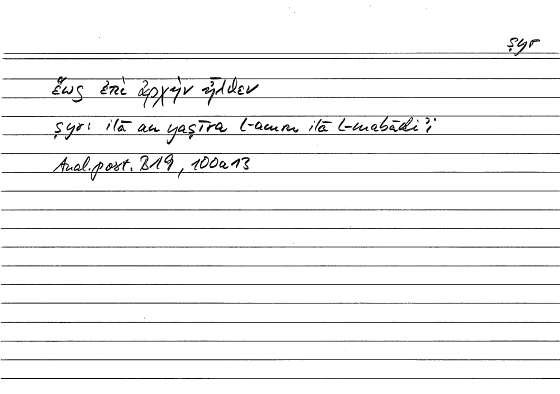 ṣyr
ἕως ἐπὶ ἀρχὴν ἦλθεν
ṣyr: ilā an yaṣīra l-amru ilā l-mabādiʾi
Anal. post. B19, 100a13